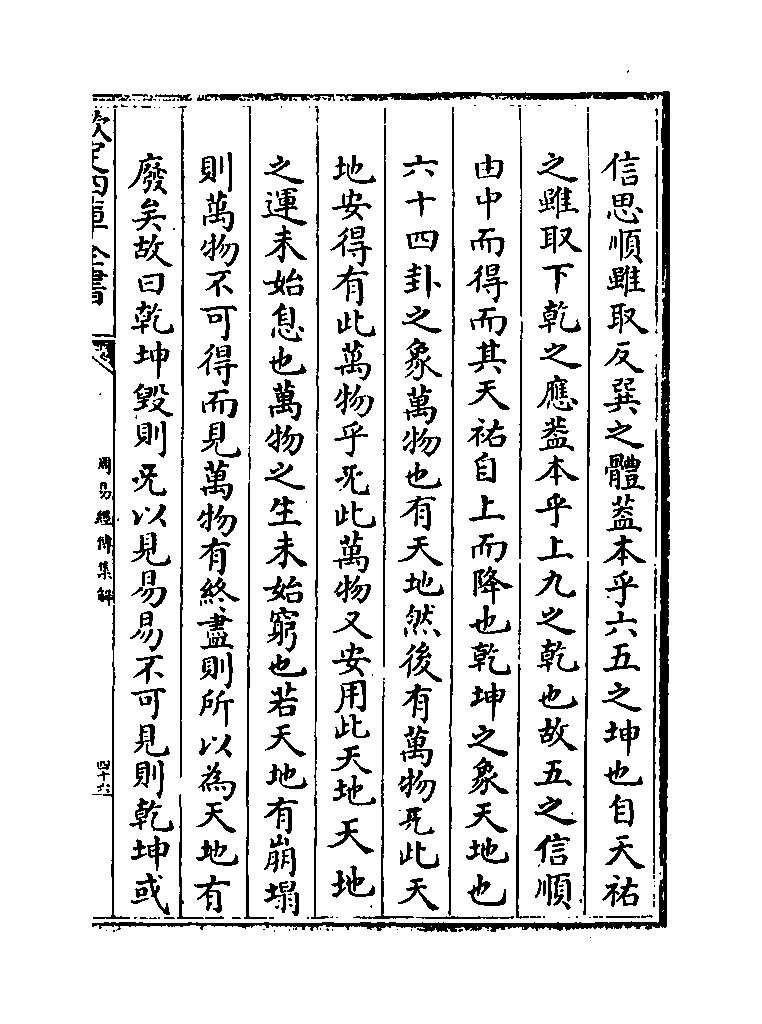 信思順雖取反巽之體葢本乎六五之坤也自天祐
之雖取下乾之應葢本乎上九之乾也故五之信順
由中而得而其天祐自上而降也乾坤之象天地也
六十四卦之象萬物也有天地然後有萬物旡此天
地安得有此萬物乎旡此萬物又安用此天地天地
之運未始息也萬物之生未始窮也若天地有崩塌
則萬物不可得而見萬物有終盡則所以為天地有
廢矣故曰乾坤毀則旡以見易易不可見則乾坤或
欽定四庫全書
周易經傳集解
四十六